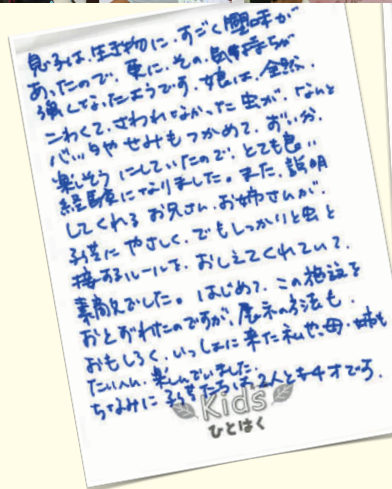 見るは、生き物に、すごく興味が
あったので、更に、その、気持ちが
強くなったようです。娘は、全然、
こわくて、さわれなかった虫が、なんと
バッタやせみもつかめて、ずい分、
楽しそうにしていたので、とても良い
経験になりました。また、説明
してくれるお兄さん、お姉さんが、
子供にやさしく、でもしっかりと虫と
接するルールを、おしえてくれていて、
素敵でした。はじめて、この施設を
おとずれたのですが、展示の方法も、
おもしろく、いっしょに来た私や、母・姉も
たいへん、楽しんでいました。
ちなみに子供たちは、2人とも4才です。
Kids
ひとはく